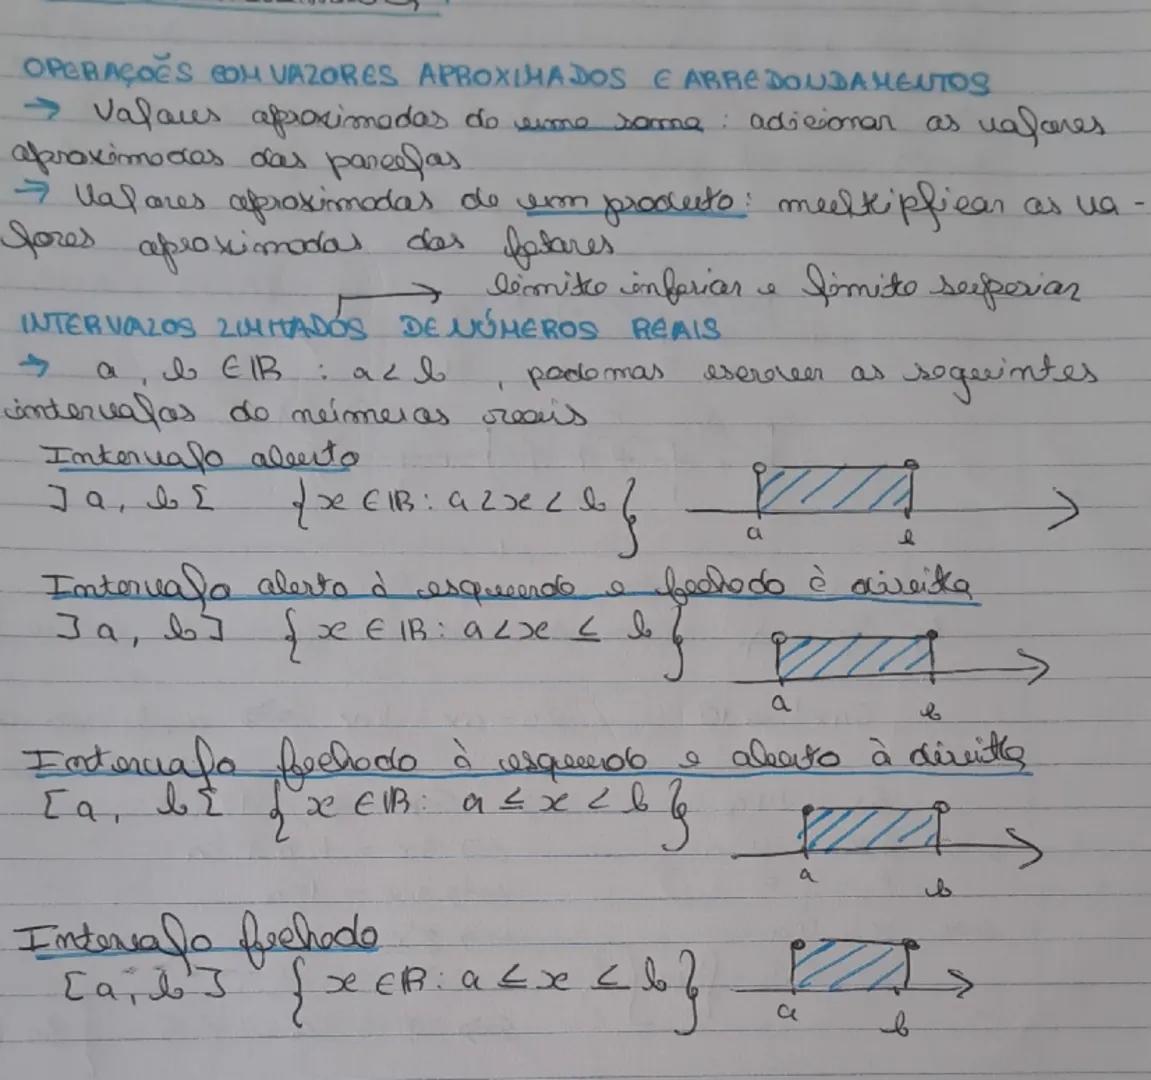 OPERAÇÕES COM VALORES APROXIMADOS E ARREDONDAMENTOS
→ Valores aproximados de uma soma: adicionar os valores
aproximados das parcelas
→ Valores aproximados de um produto: multiplicar os va-
lores aproximados dos fatores
→ limite inferior e limite superior
INTERVALOS LIMITADOS DE NÚMEROS REAIS
→ a, b ∈ IR : a < b, podemos escrever os seguintes
intervalos de números reais
Intervalo aberto
]a, b[ {x ∈ IR: a < x < b}
a b
Intervalo aberto à esquerda e fechado à direita
]a, b] {x ∈ IR: a < x ≤ b}
a b
Intervalo fechado à esquerda e aberto à direita
[a, b[ {x ∈ IR: a ≤ x < b}
a b
Intervalo fechado
[a, b] {x ∈ IR: a ≤ x ≤ b}
a b